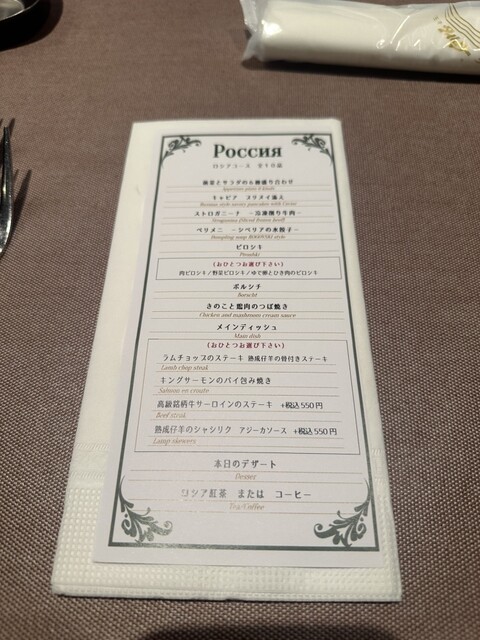 Россия
ロシアコース 全10品
前菜とサラダの6種盛り合わせ
Appetizer plate 6 kinds
キャビア ヌリヌイ添え
Russian style savory pancakes with Caviar
ストロガニーナ －冷凍削り牛肉－
Stroganina (Sliced frozen beef)
ペリメニ －シベリアの水餃子－
ピロシキ
Piroshki
(おひとつお選び下さい)
肉ピロシキ/野菜ピロシキ/ゆで卵とひき肉のピロシキ
ボルシチ
Borscht
きのこと鶏肉のつぼ焼き
Chicken and mushroom cream sauce
メインディッシュ
Main dish
(おひとつお選び下さい)
ラムチョップのステーキ 熟成仔羊の骨付きステーキ
Lamb chop steak
キングサーモンのパイ包み焼き
Salmon en croute
高級銘柄牛サーロインのステーキ +税込550円
Beef steak
熟成仔羊のシャシリク アジーカソース +税込550円
Lamp skewers
本日のデザート
Dessert
ロシア紅茶 または コーヒー
Tea/Coffee